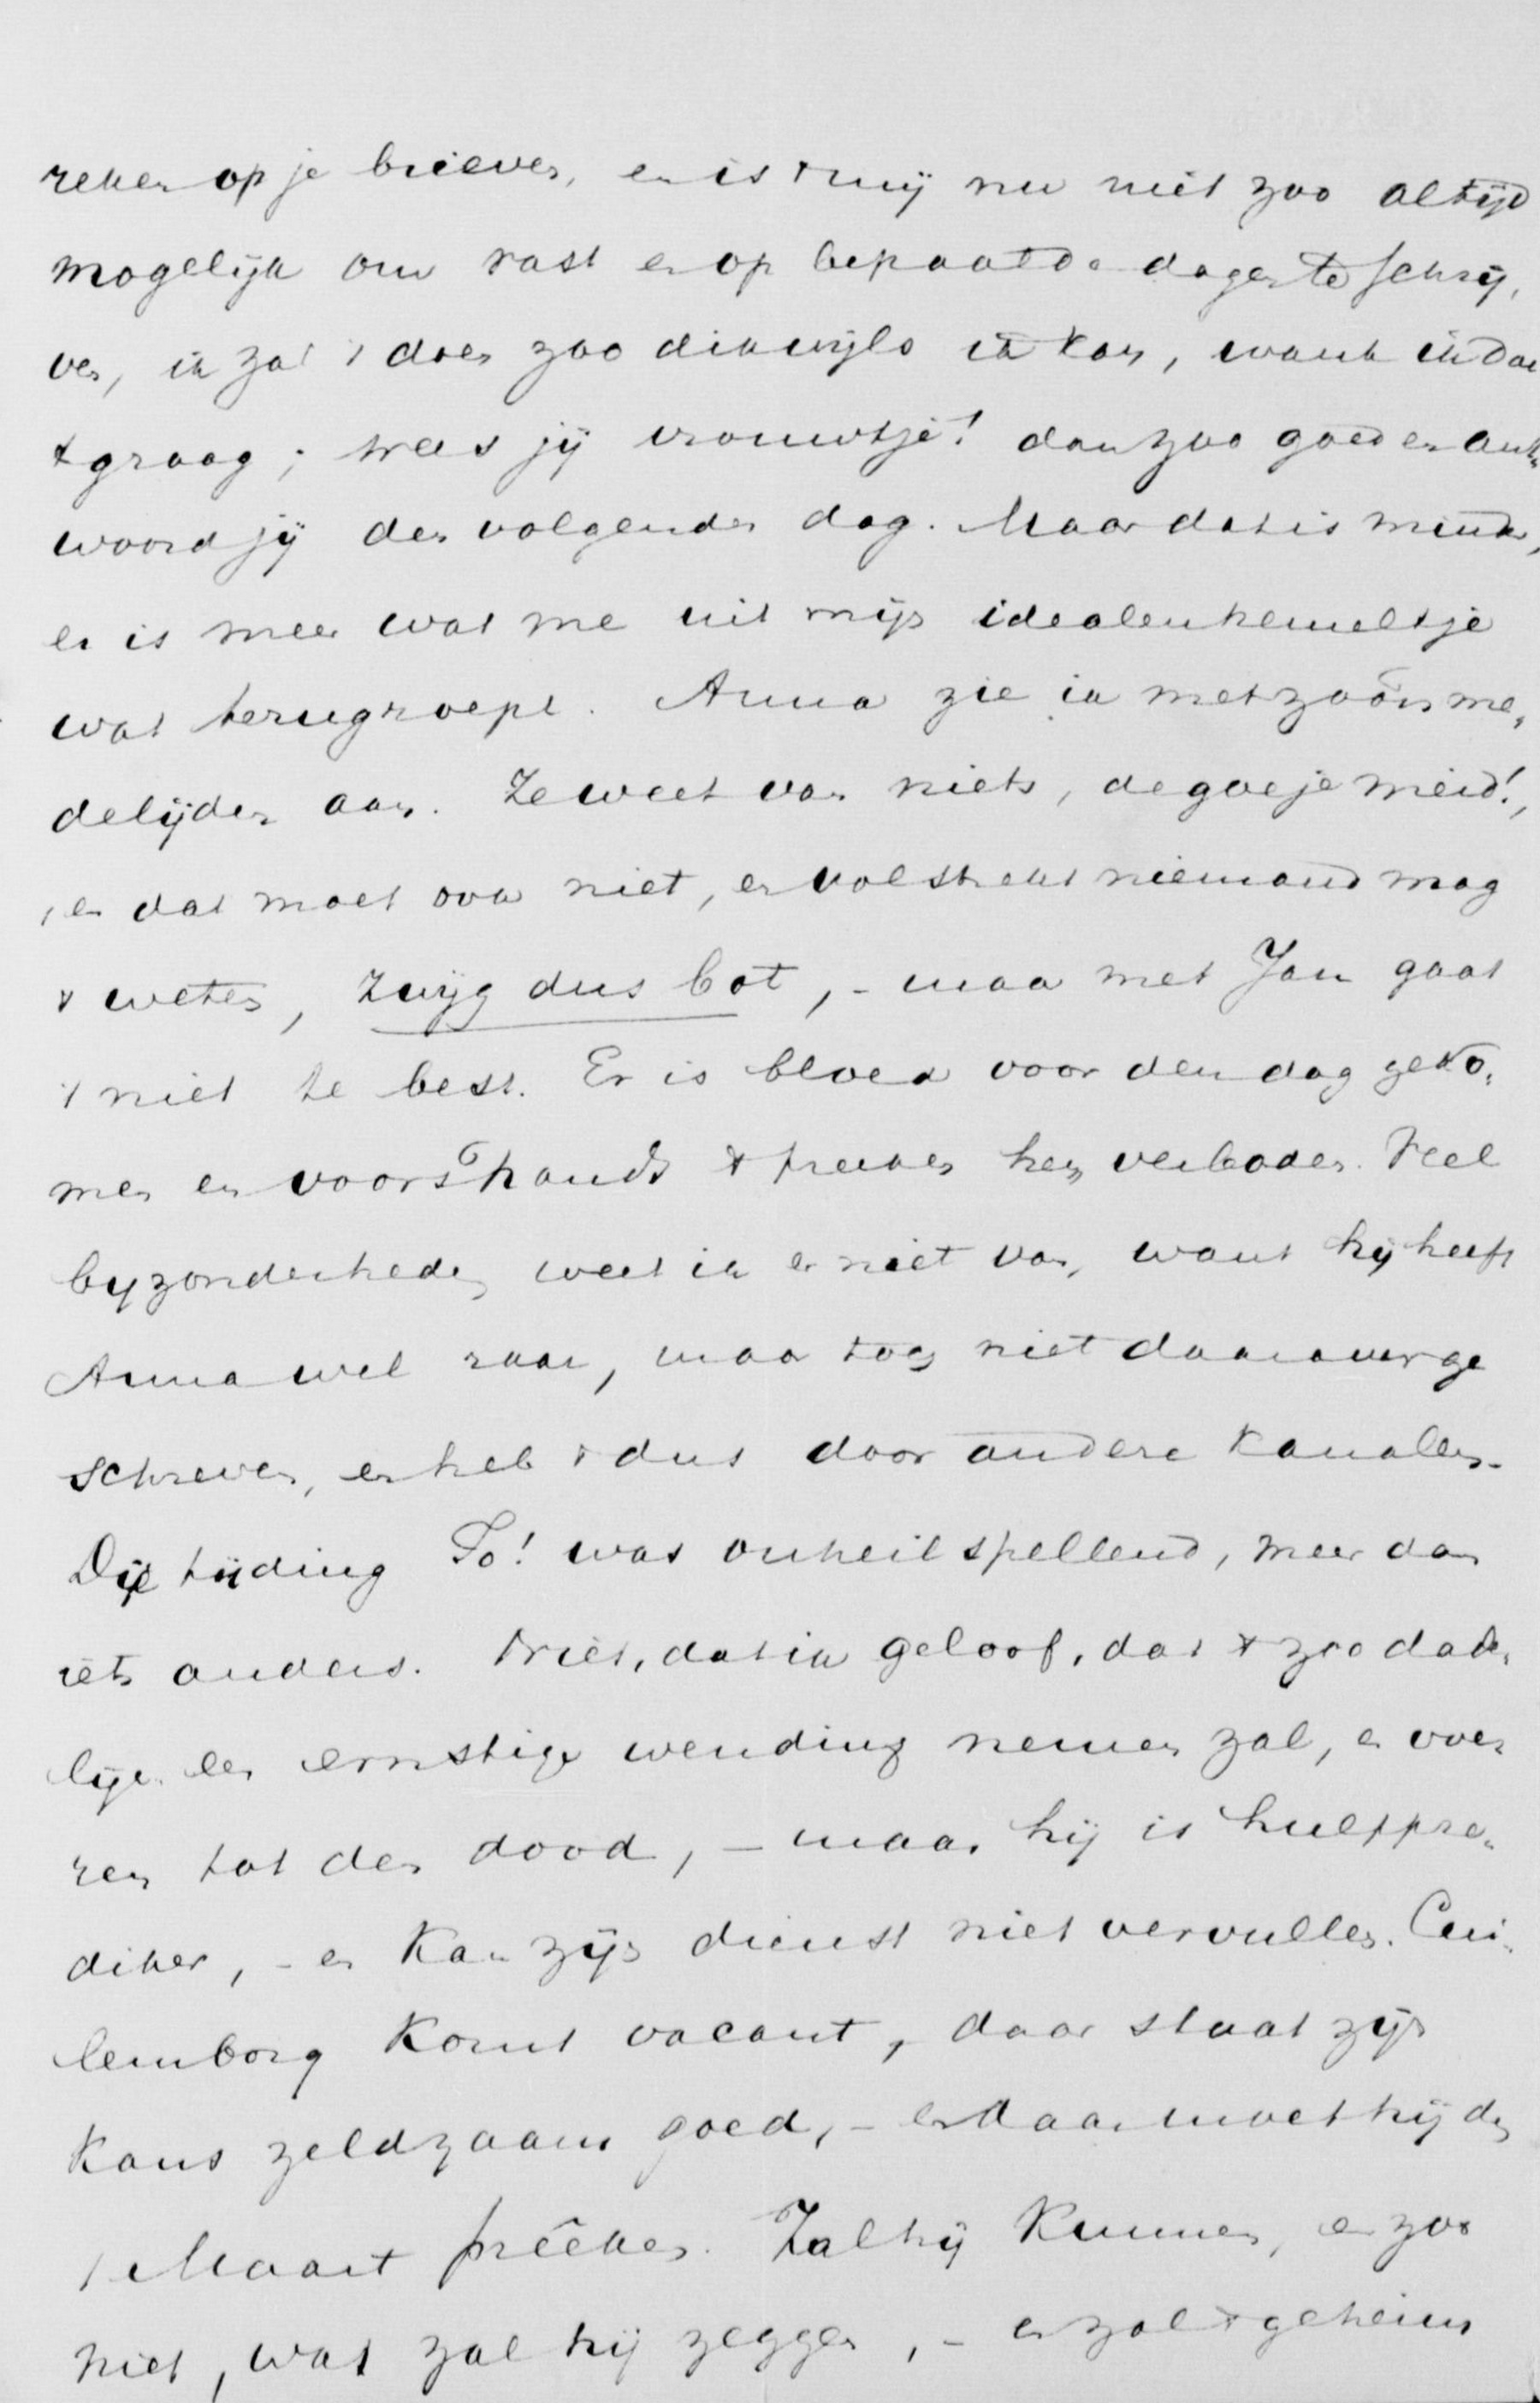 reken op je brieven, en is 't mij nu niet zoo altijd
mogelijk om vast en op bepaalde dagen te schrij,
ven, ik zal 't doen zoo dikwijls ik kan, want ik doe
't graag; wees jij vrouwtje! dan zoo goed en ant„
woord jij den volgenden dag. Maar dat is minder,
er is meer wat me uit mijn idealenhemeltje
wat terugroept. Anna zie ik met zoo'n me„
delijden aan. Ze weet van niets, de goeje meid!,
, en dat moet ook niet, en volstrekt niemand mag
't weten, zwijg dus bot, – maar met Jan gaat
't niet te best. Er is bloed voor den dag geko„
men en voorshands 't preeken hem verboden. Veel
byzonderheden weet ik er niet van, want hij heeft
Anna wel raar, maar toch niet daarover ge
schreven, en heb 't dus door andere kanalen.
Die tijding To! was onheilspellend, meer dan
iets anders. Niet, dat ik geloof, dat 't zoo dade„
lijk een ernstige wending nemen zal, en voe„
ren tot den dood, – maar hij is hulppre„
diker, – en kan zijn dienst niet vervullen. Cui„
lemborg komt vacant, daar staat zijn
kans zeldzaam goed, – en daar moet hij den
1 Maart préêken. Zal hij kunnen, en zoo
niet, wat zal hij zeggen, – en zal 't geheim